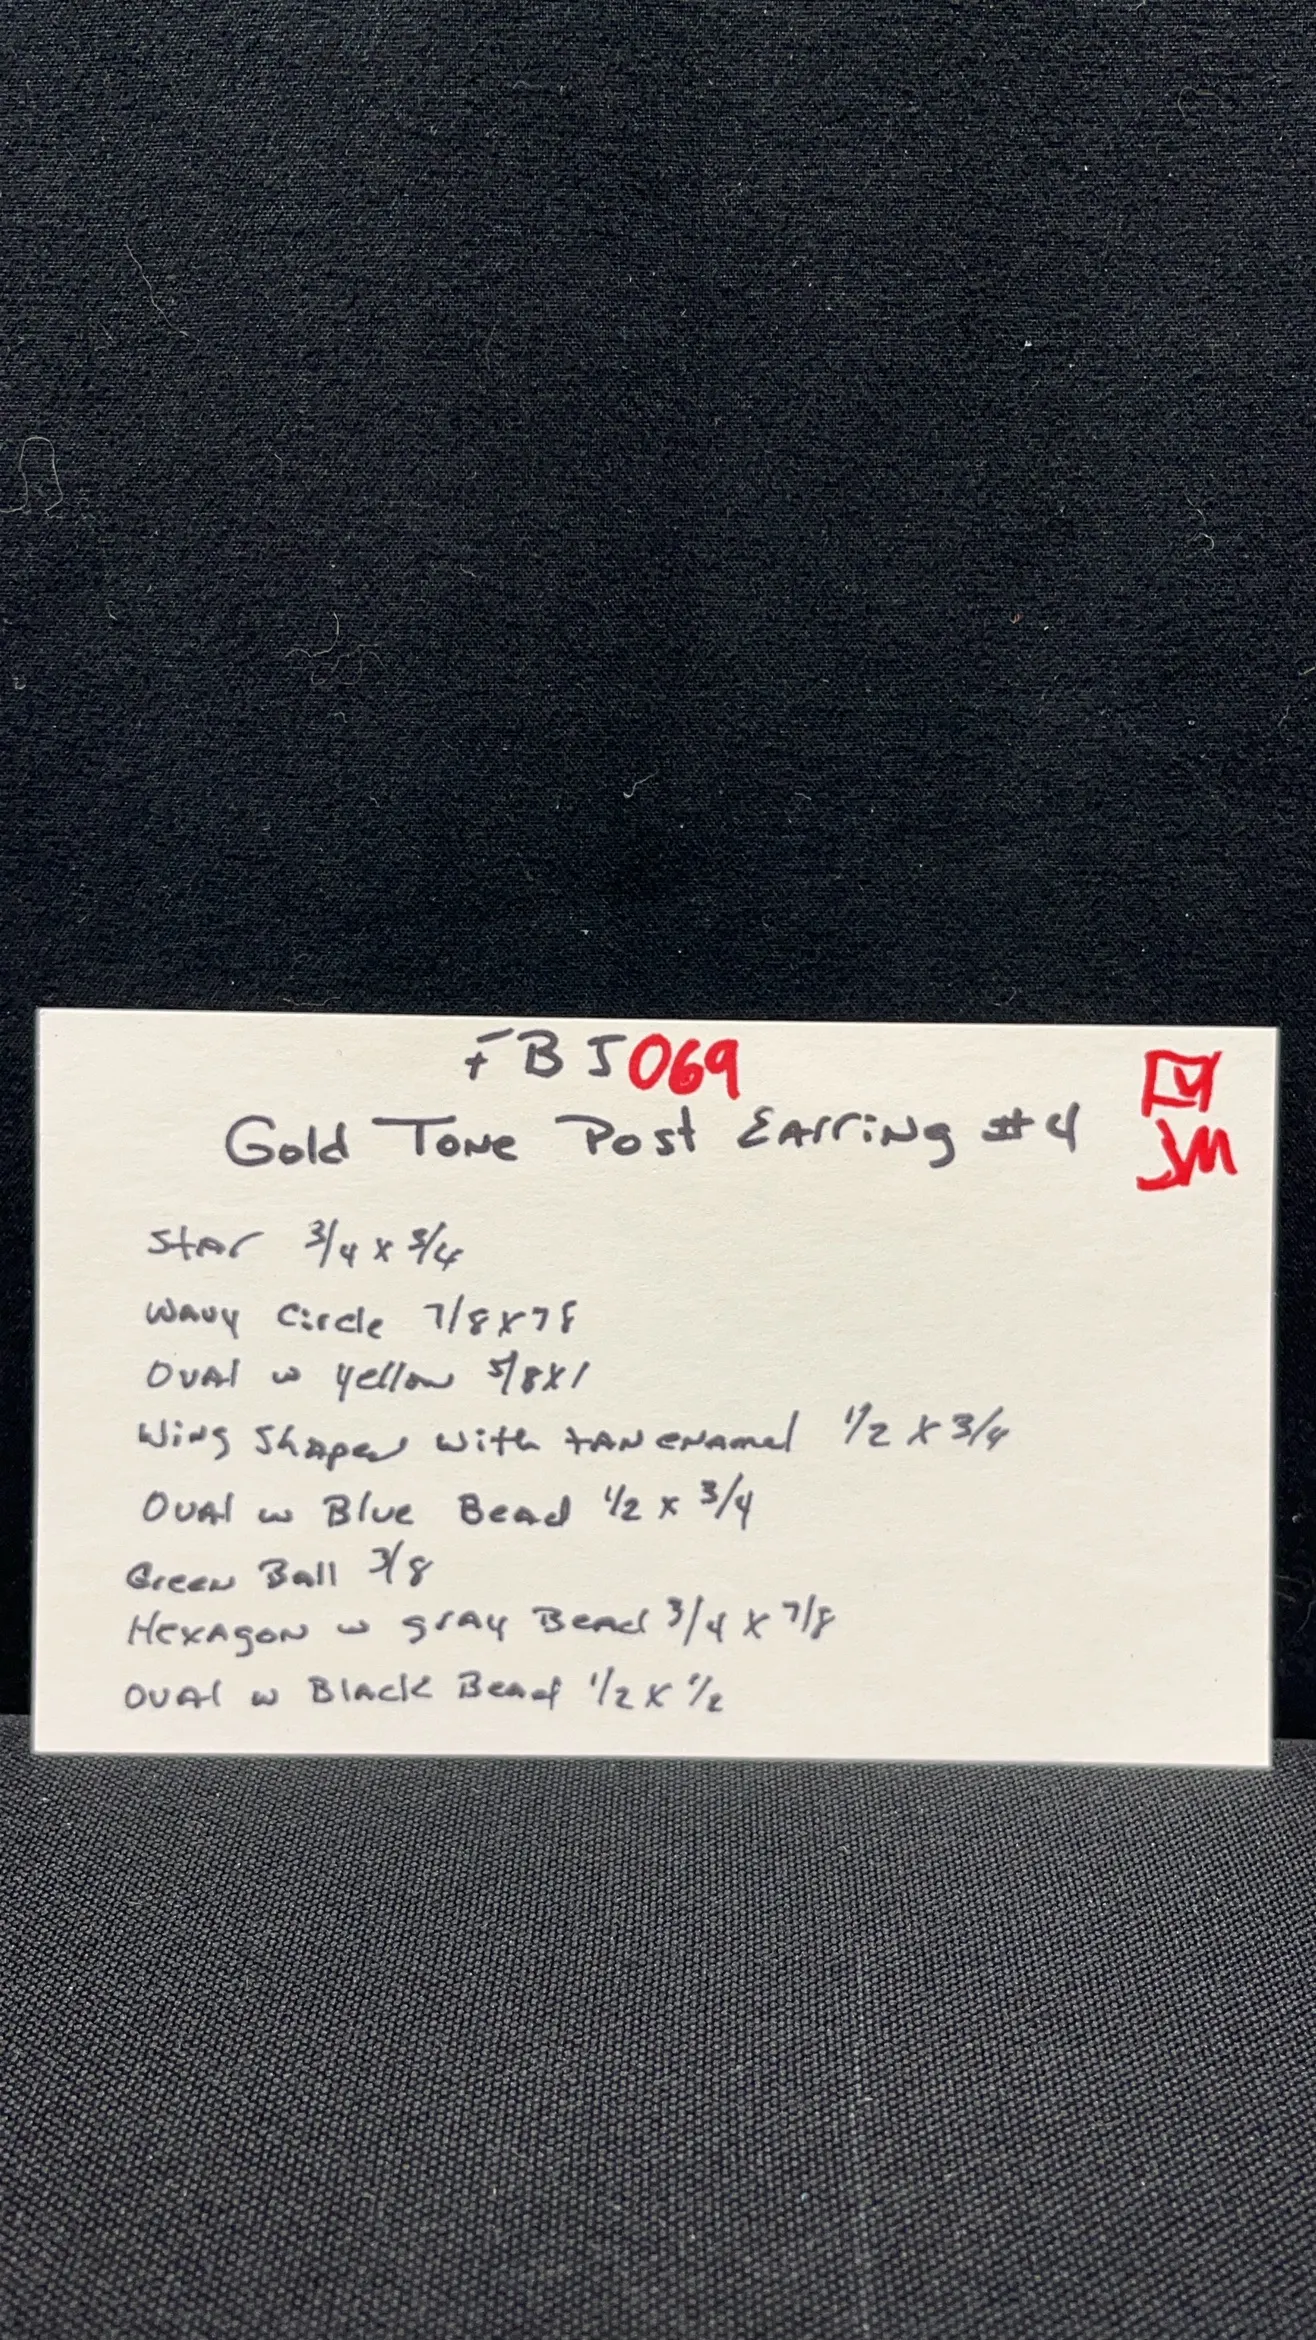 FBJ069
Gold Tone Post Earring #4
JM
Star 3/4 x 3/4
Wavy Circle 7/8x78
Oval w yellow 5/8x1
Wing Shaped with tan enamel 1/2 x 3/4
Oval w Blue Bead 1/2 x 3/4
Green Ball 3/8
Hexagon w gray Bead 3/4 x 7/8
Oval w Black Bead 1/2 x 1/2